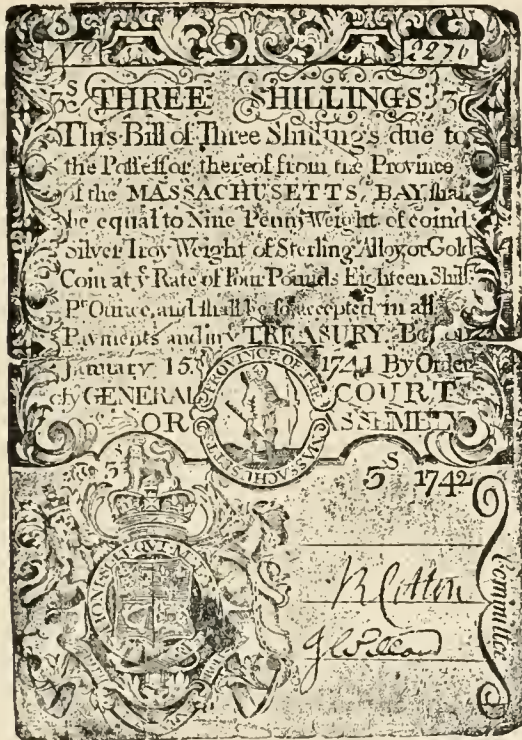 No 2270
3S THREE SHILLINGS 3S
This Bill of Three Shillings due to
the Poſſeſſor thereof from the Province
of the MASSACHUSETTS BAY, ſhall
be equal to Nine Penny Weight of coind
Silver Troy Weight of Sterling Alloy, or Gold
Coin at yͤ Rate of Four Pounds Eighteen Shill
Pr Ounce, and ſhall be ſo accepted in all
Payments and in yͤ TREASURY. Boſton
January 15. 1741 By Order
of yͤ GENERAL COURT
OR ASSEMBLY
PROVINCE OF THE MASSACHUSETTS
3S
3S 1742
HONI SOIT QUI MAL
R Cotton
J Willard
Committee